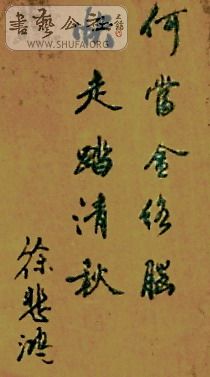 書藝公社
WWW.SHUFA.ORG
何當金絡腦
快走踏清秋
徐悲鴻